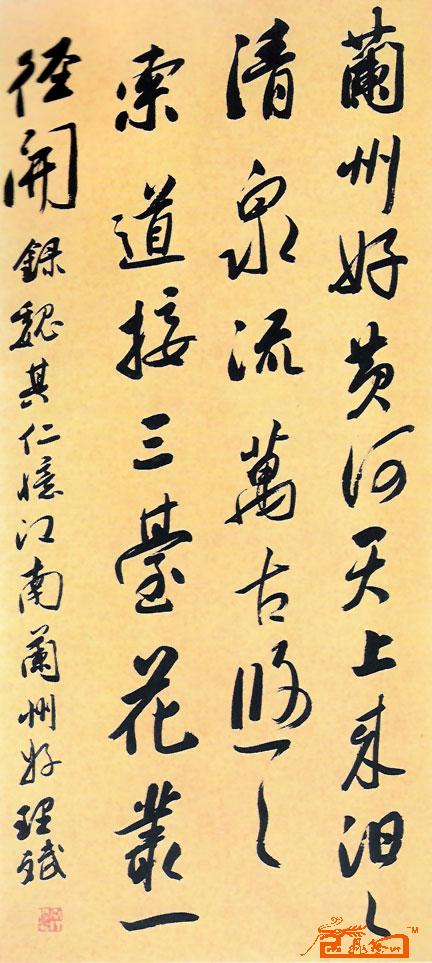 蘭州好黄河天上来汩々
清泉流萬古悠々
索道接三臺花叢一
徑開
錄魏其仁憶江南蘭州好 理斌